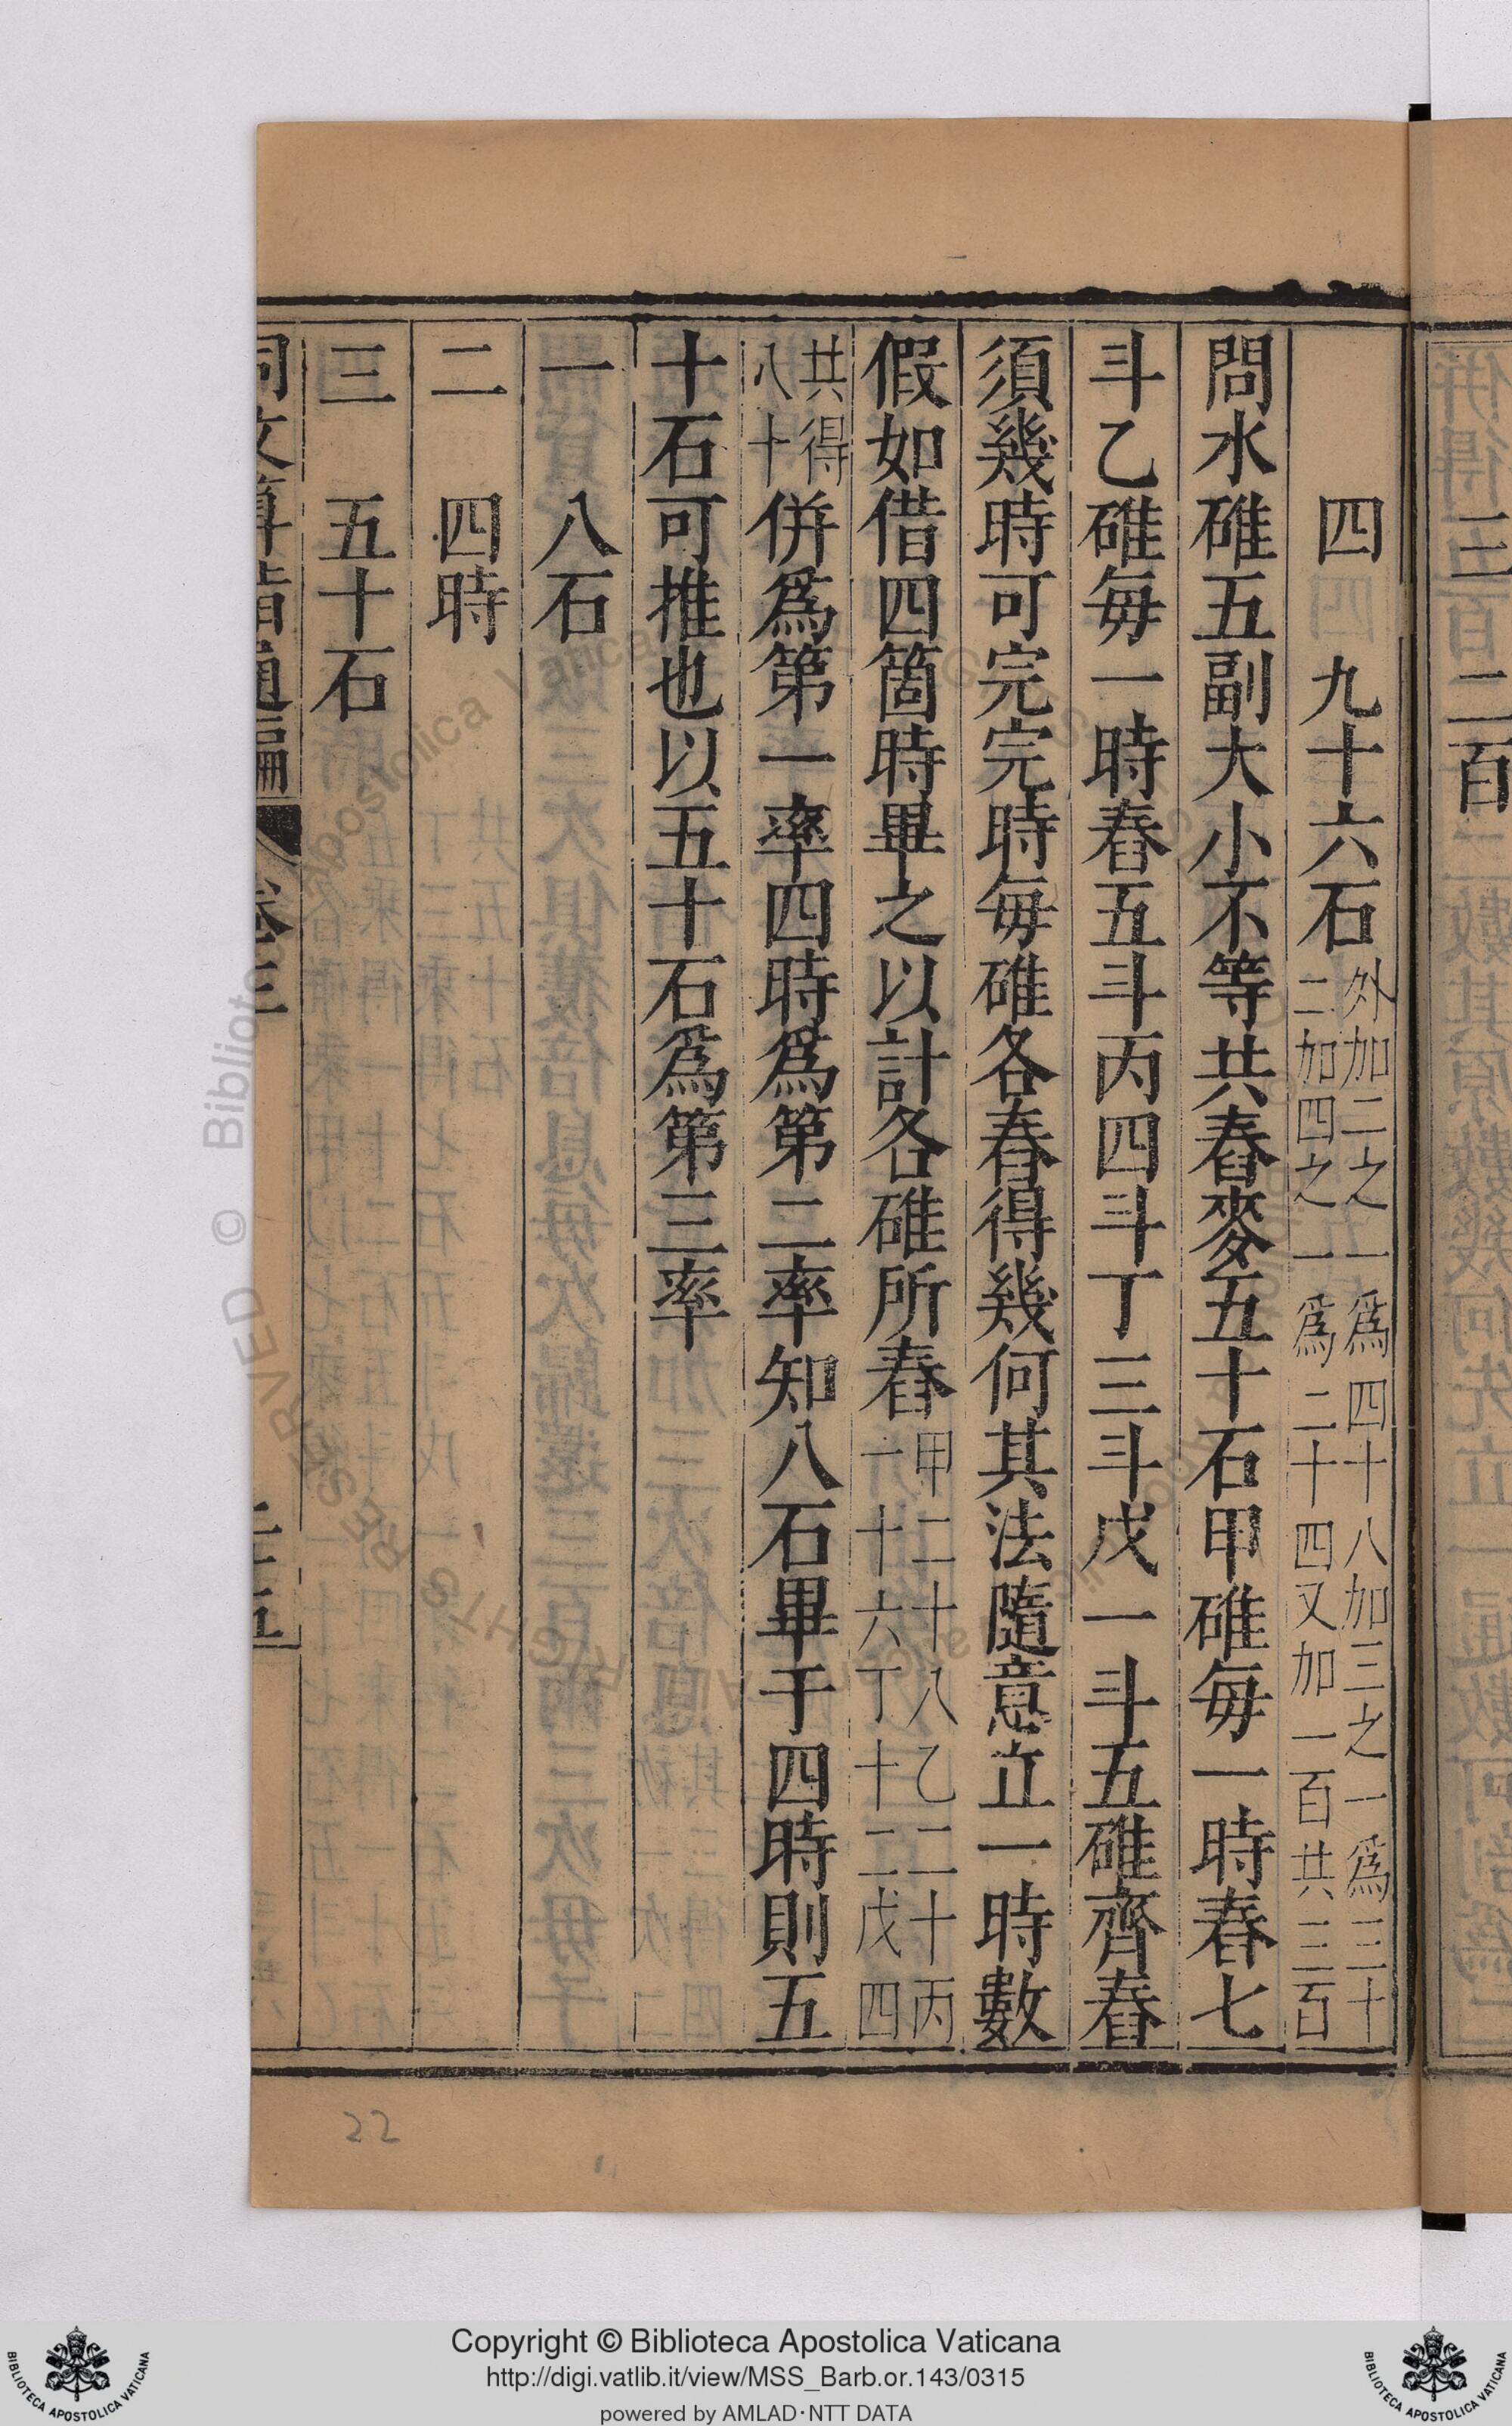 四　九十六石外加二之一爲四十八加三之一爲三十二加四之一爲二十四又加一百共三百
問水碓五副大小不等共舂麥五十石甲碓每一時舂七
斗乙碓每一時舂五斗丙四斗丁三斗戊一斗五碓齊舂
須幾時可完完時每碓各舂得幾何其法隨意立一時數
假如借四箇時畢之以計各碓所舂甲二十八乙二十丙一十六丁十二戊四
共得八十併爲第一率四時爲第二率知八石畢于四時則五
十石可推也以五十石爲第三率
一　八石
二　四時
三　五十石
同文算指通編　卷三
三百　二百
22
© Biblioteca Apostolica Vaticana
Copyright © Biblioteca Apostolica Vaticana
http://digi.vatlib.it/view/MSS_Barb.or.143/0315
powered by AMLAD·NTT DATA
BIBLIOTECA APOSTOLICA VATICANA
BIBLIOTECA APOSTOLICA VATICANA